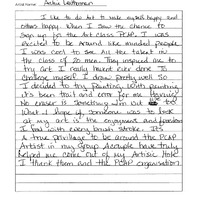 Artist Name: Leatherman
I like to do Art to make myself happy and
others happy. When I saw the chance to
sign up to the Art class PCAP. I was
excited to be around like minded people
I was cool to see all the talent in
the class of 20 men. They inspired me to
try Art I really havent ever done. To
challenge myself. I draw pretty well so
I decided to try Painting. with painting
it's been trail and error for me. Having
No eraser is something I'm out to
What I hope of someone was to look
at my art is the enjoyment and freedom
I had with every brush stroke. It's
a true privilege to be around the PCAP
Artist in my group. A couple have truly
helped me come out of my Artistic Hole
I thank them and the PCAP organization